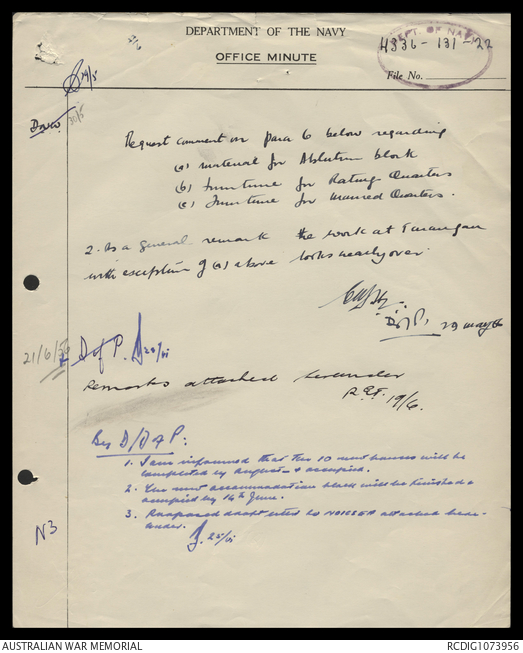 DEPARTMENT OF THE NAVY
OFFICE MINUTE
DEPT. OF NAVY
4836-131-22
File No.
29/5
30/5
Request comment on para 6 below regarding
(a) material for Ablution block
(b) Furniture for Rating Quarters
(c) Furniture for Married Quarters.
2. As a general remark the work at Tarangau
with exception of (a) above looks nearly over.
29 May 56
21/6/56
D of P.
Remarks attached hereunder
19/6.
By D/D of P:
1. I am informed that the 10 new houses will be
completed by August & occupied.
2. The new accommodation block will be finished &
occupied by 14th June.
3. Proposed draft letter to NOICNEA attached here-
under.
N3
AUSTRALIAN WAR MEMORIAL
RCDIG1073956